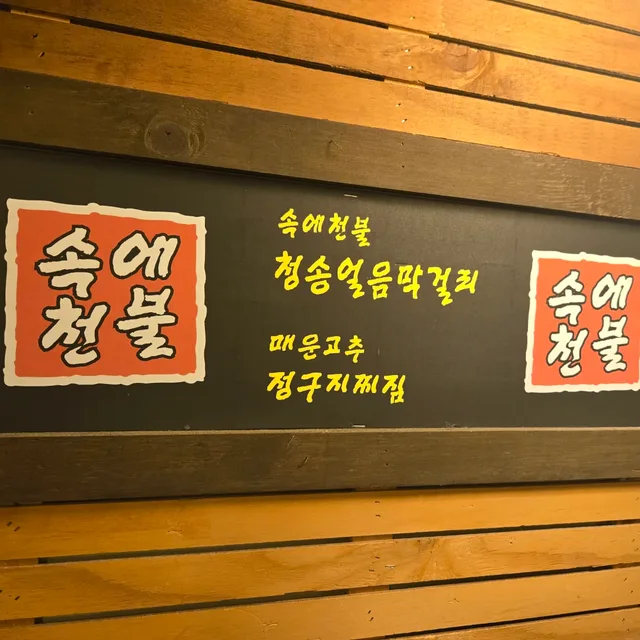 속에
천불
속에천불
청송얼음막걸리
매운고추
정구지찌짐
속에
천불